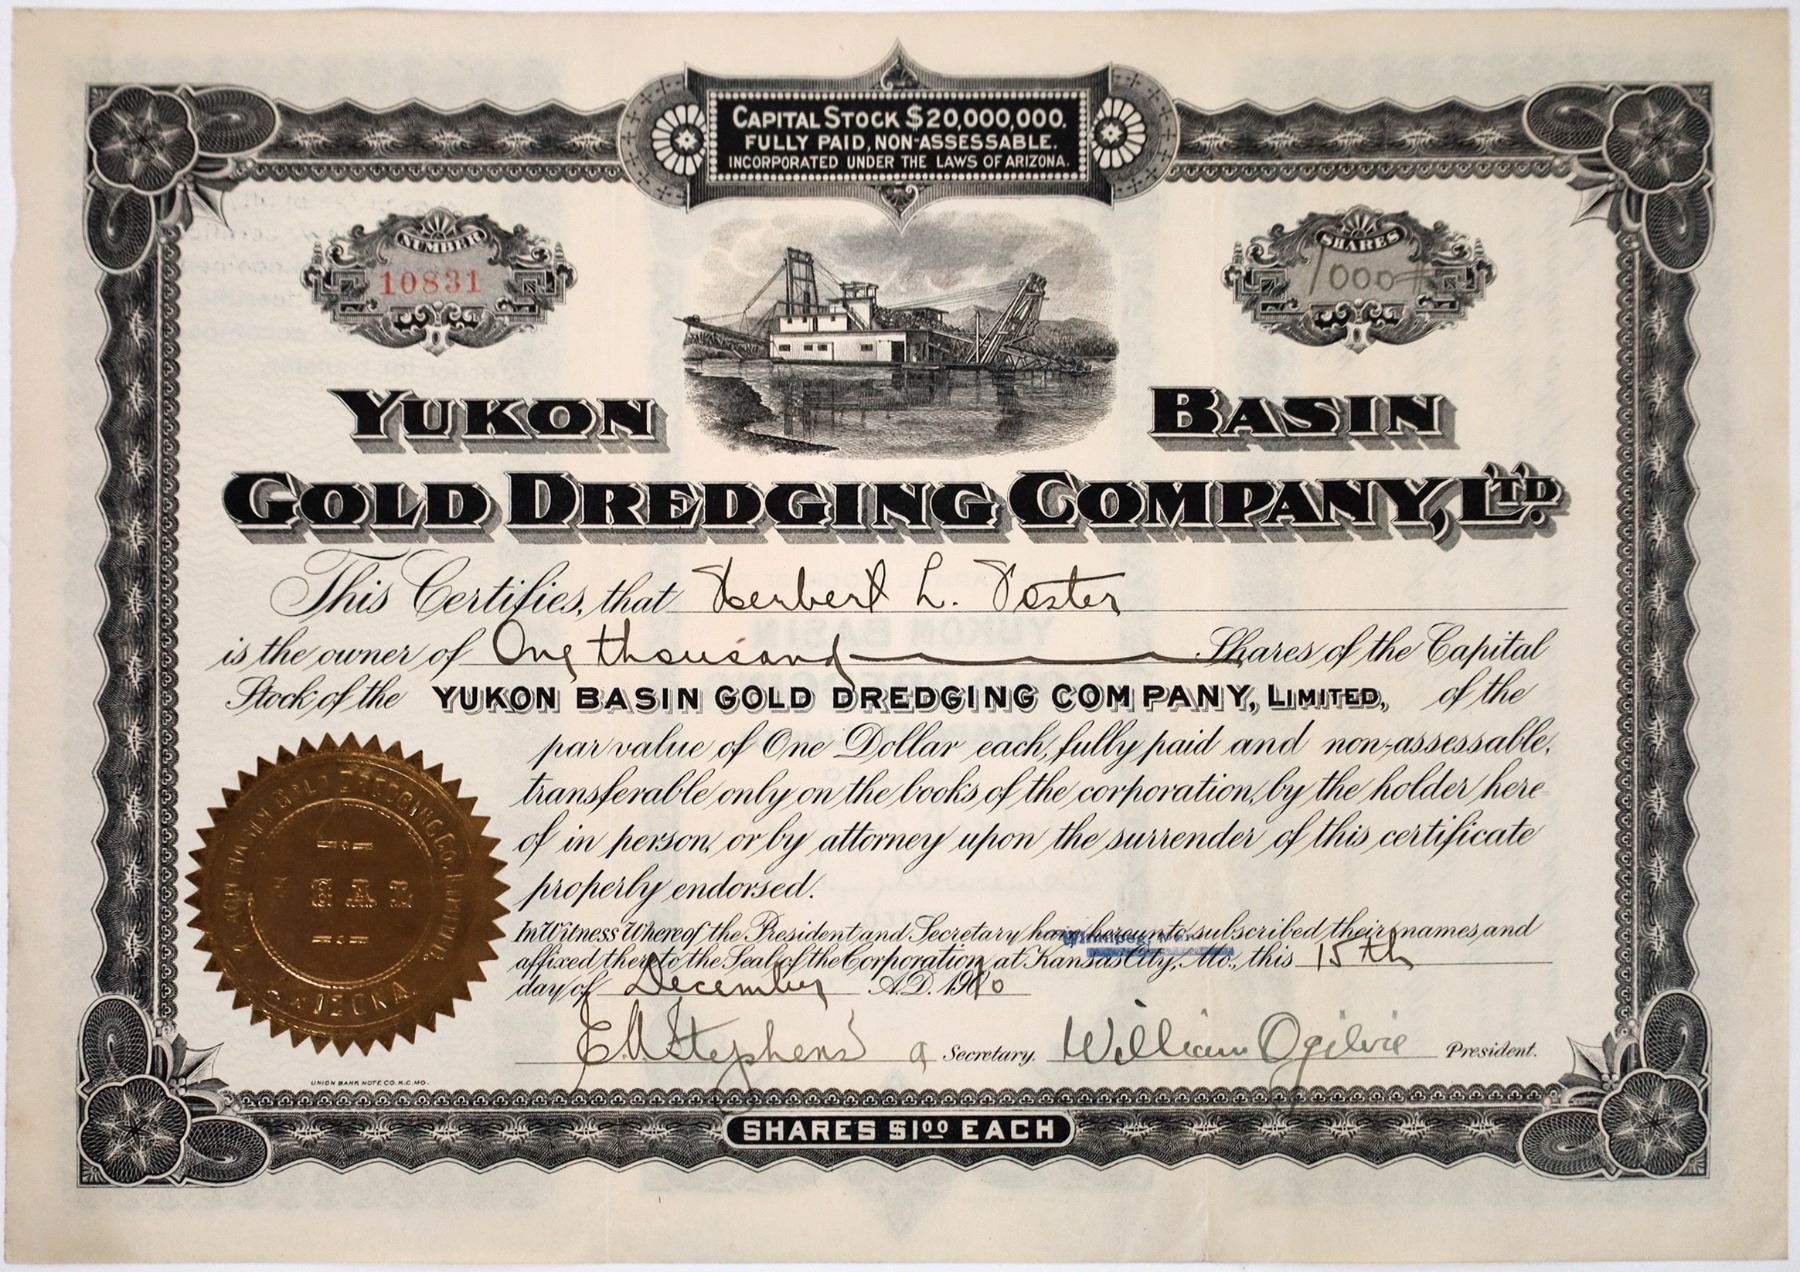 CAPITAL STOCK $20,000,000.
FULLY PAID, NON-ASSESSABLE.
INCORPORATED UNDER THE LAWS OF ARIZONA.
NUMBER
10831
SHARES
1000
YUKON BASIN
GOLD DREDGING COMPANY, LTD.
This Certifies, that Herbert L. Foster
is the owner of One thousand Shares of the Capital
Stock of the YUKON BASIN GOLD DREDGING COMPANY, LIMITED, of the
par value of One Dollar each, fully paid and non-assessable,
transferable only on the books of the corporation, by the holder here-
of in person, or by attorney upon the surrender of this certificate
properly endorsed.
In Witness Whereof the President and Secretary have hereunto subscribed their names and
Winnipeg,
affixed thereto the Seal of the Corporation, at Kansas City, Mo., this 15th
day of December A.D. 1910
E A Stephens a Secretary. William Ogilvie President.
YUKON BASIN GOLD DREDGING CO. LIMITED.
SEAL
ARIZONA
UNION BANK NOTE CO. K.C. MO.
SHARES $1.00 EACH